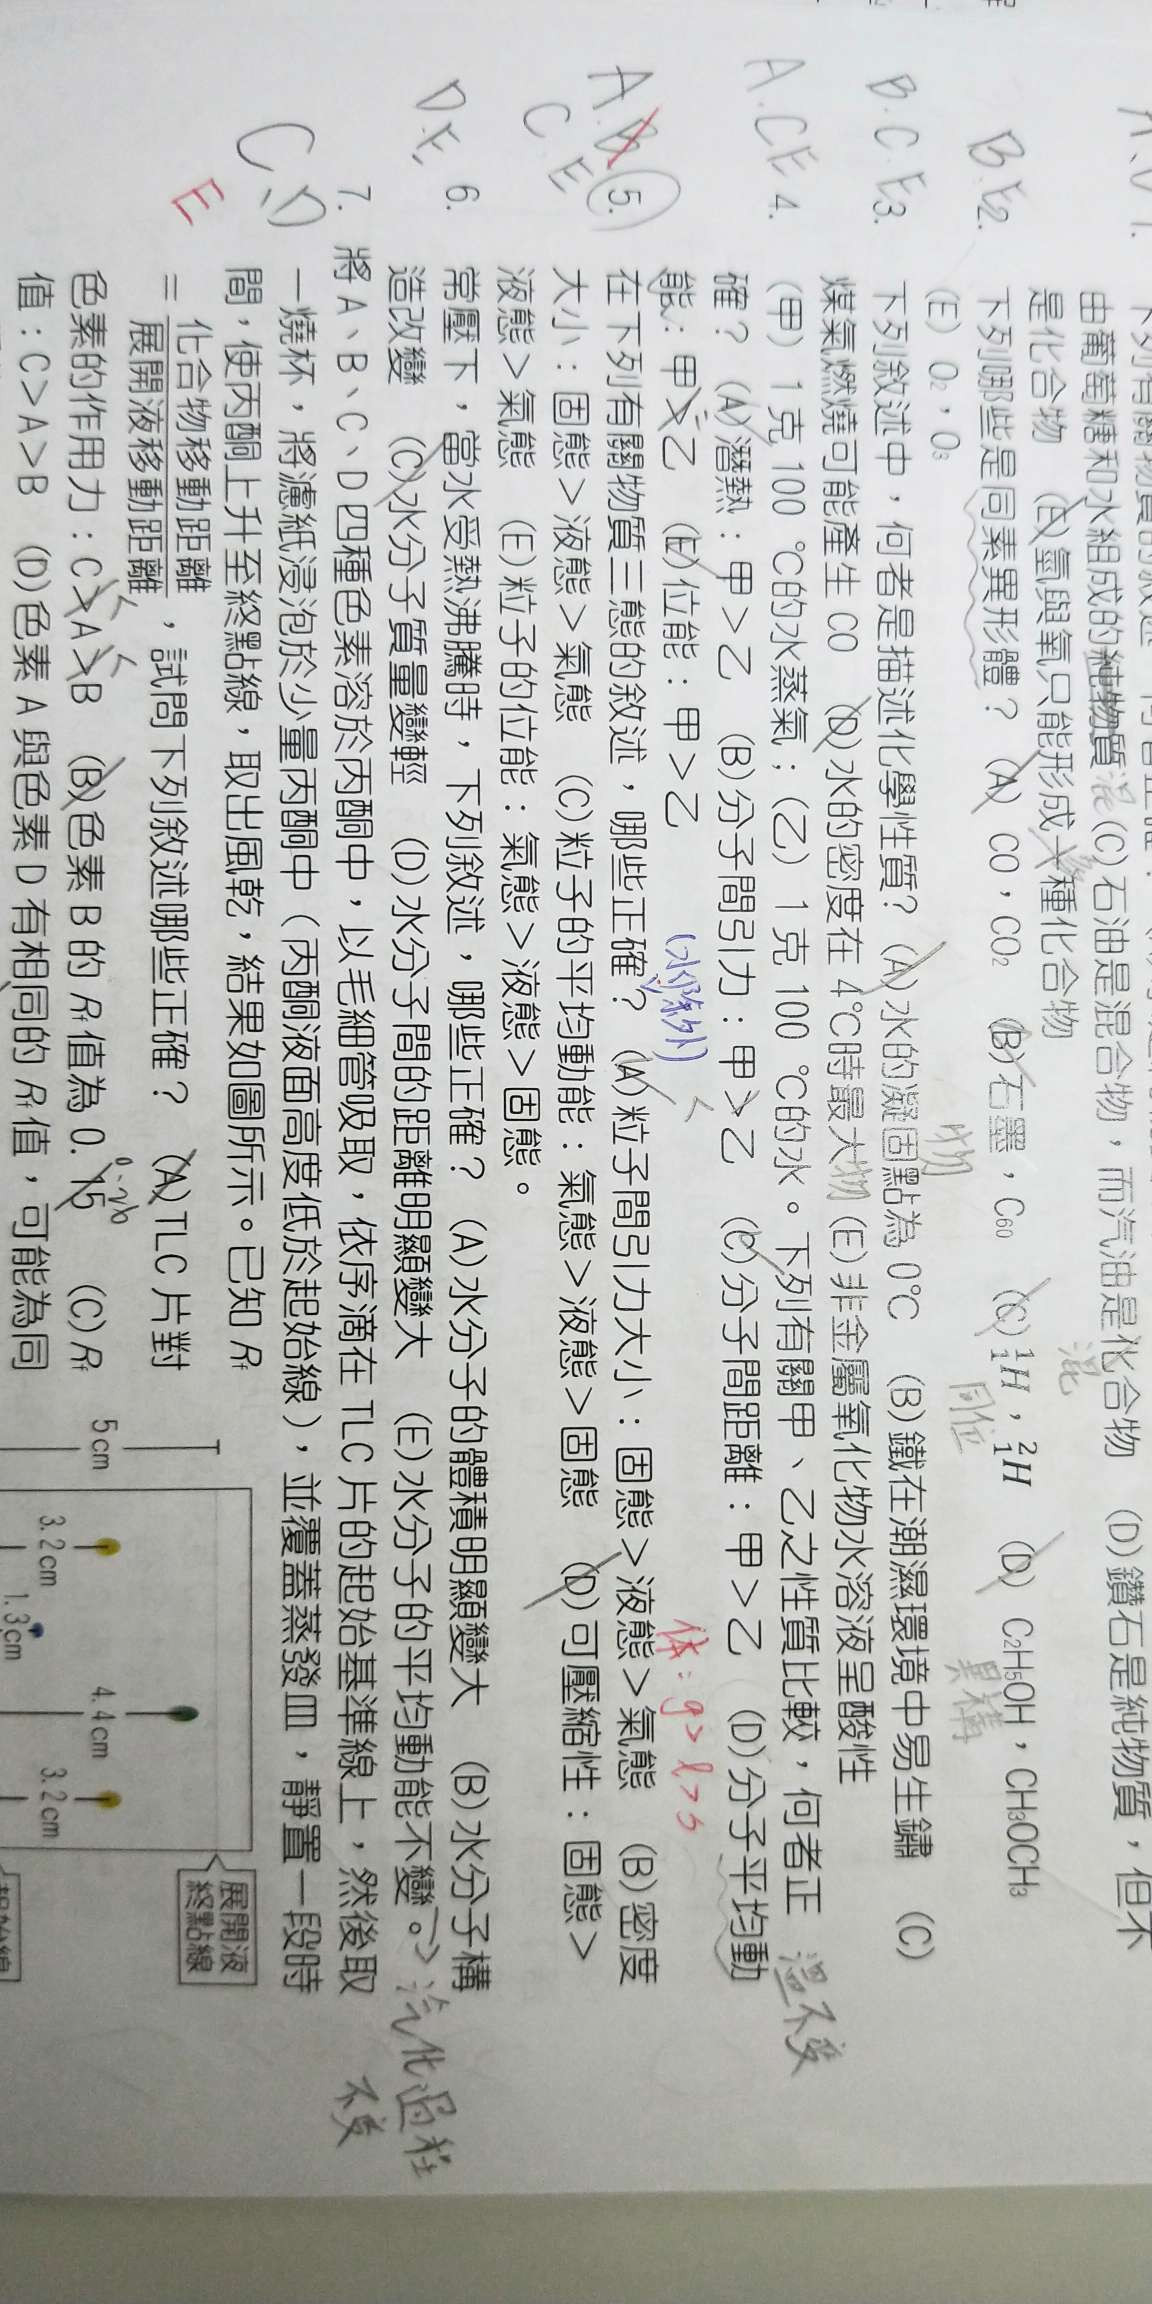 由葡萄糖和水組成的純物質 混 (C)石油是混合物，而汽油是化合物 混 (D)鑽石是純物質，但不
是化合物 (E)氫與氧只能形成一種化合物
B.E 2. 下列哪些是同素異形體？ (A) CO，CO2 (B)石墨，C60 (C) ¹₁H，²₁H 同位 (D) C2H5OH，CH3OCH3 異構
(E) O2，O3
B.C.E 3. 下列敘述中，何者是描述化學性質？ (A)水的凝固點為 0℃ 物 (B)鐵在潮濕環境中易生鏽 (C)
煤氣燃燒可能產生 CO (D)水的密度在 4℃時最大 物 (E)非金屬氧化物水溶液呈酸性
A.CE 4. (甲) 1 克 100 ℃的水蒸氣；(乙) 1 克 100 ℃的水。下列有關甲、乙之性質比較，何者正
確？ (A)潛熱：甲＞乙 (B)分子間引力：甲＞乙 < (C)分子間距離：甲＞乙 (D)分子平均動 溫不變
能：甲＞乙 = (E)位能：甲＞乙
(水除外) 体：g > l > s
A.B C E 5. 在下列有關物質三態的敘述，哪些正確？ (A)粒子間引力大小：固態＞液態＞氣態 (B)密度
大小：固態＞液態＞氣態 (C)粒子的平均動能：氣態＞液態＞固態 (D)可壓縮性：固態＞
液態＞氣態 (E)粒子的位能：氣態＞液態＞固態。
D.E. 6. 常壓下，當水受熱沸騰時，下列敘述，哪些正確？ (A)水分子的體積明顯變大 (B)水分子構
造改變 (C)水分子質量變輕 (D)水分子間的距離明顯變大 (E)水分子的平均動能不變。 汽化過程
不變
C、D E 7. 將 A、B、C、D 四種色素溶於丙酮中，以毛細管吸取，依序滴在 TLC 片的起始基準線上，然後取
一燒杯，將濾紙浸泡於少量丙酮中（丙酮液面高度低於起始線），並覆蓋蒸發皿，靜置一段時
間，使丙酮上升至終點線，取出風乾，結果如圖所示。已知 Rf
= 化合物移動距離
展開液移動距離 ，試問下列敘述哪些正確？ (A)TLC 片對
色素的作用力：C＞A＞B < < (B)色素 B 的 Rf 值為 0.15 0.26 (C) Rf
值：C＞A＞B (D)色素 A 與色素 D 有相同的 Rf 值，可能為同
展開液
終點線
5 cm
3.2 cm
1.3 cm
4.4 cm
3.2 cm